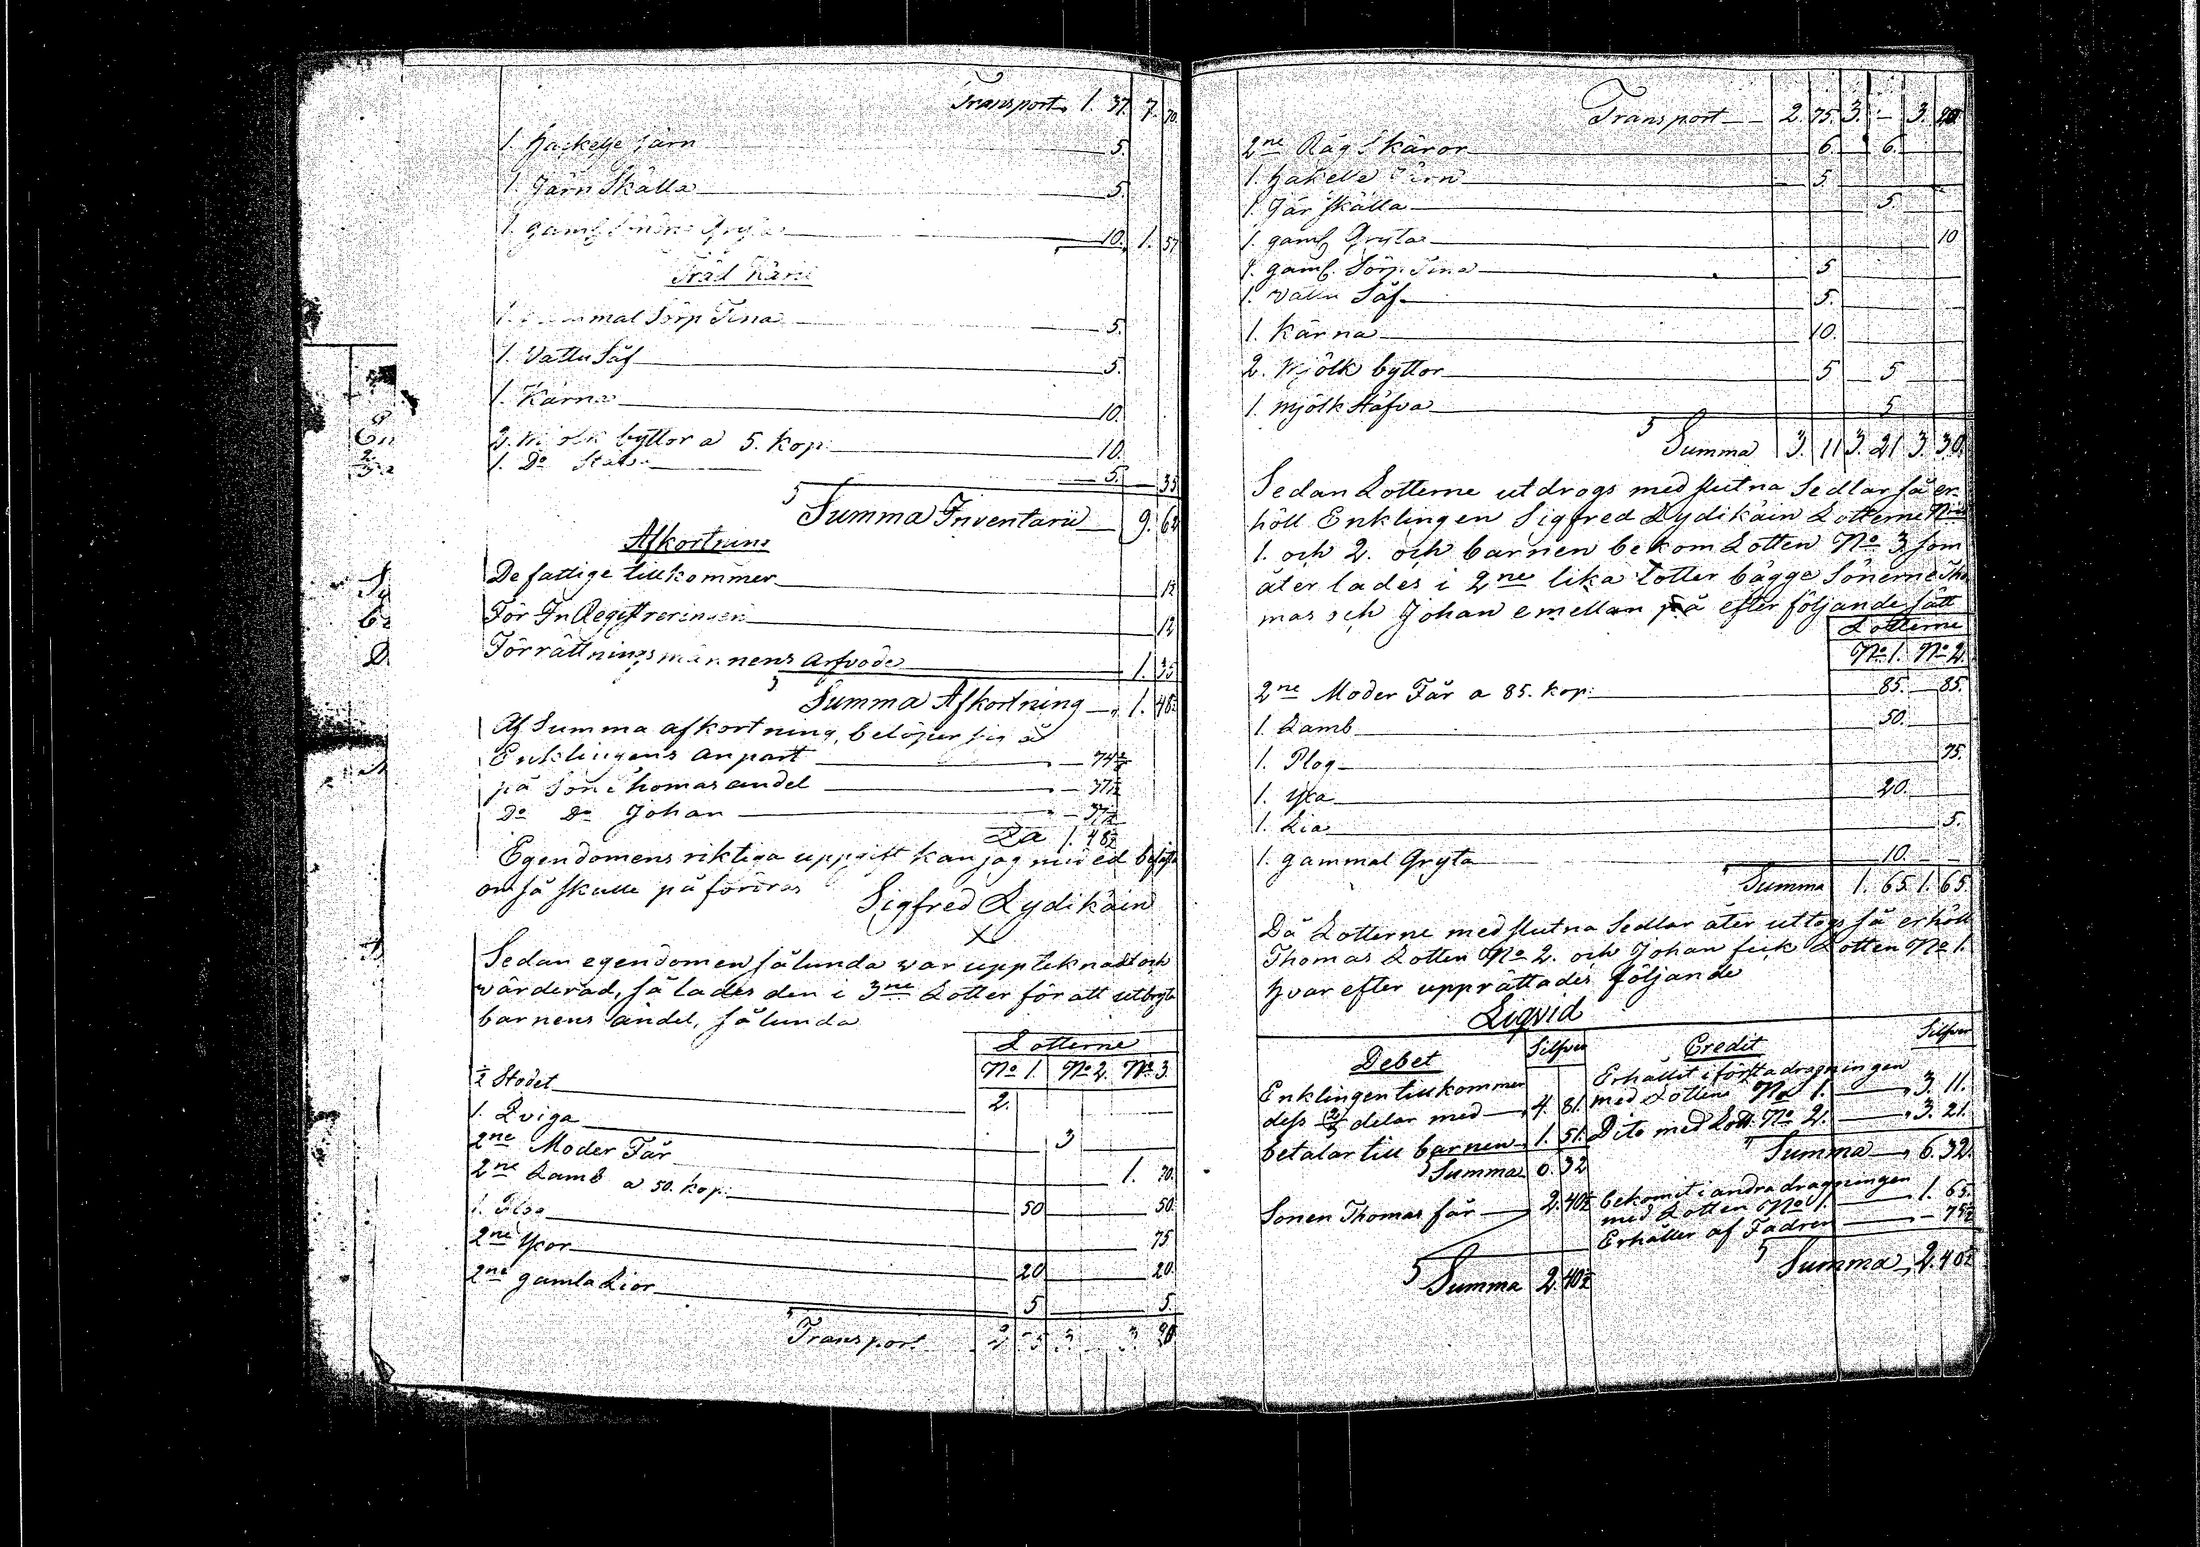 Transport 1. 37. 7. 70.
1. Hackelse Järn 5.
1. Järn Skålla 5.
1. gaml Gryta 10. 1. 57
Träd Käril
1. gammal Sörp Tina 5.
1. Vattu Såf 5.
1. Kärna 10.
2. Mjölk byttor a 5. kop. 10.
1. Do Stäfva 5. 35
Summa Inventarii 9. 62
Afkortning
De fattige tillkommer 12
För InRegistreringen 12
Förrättningsmännens Arfvode 1. 35
Summa Afkortning 1. 48½
Af Summa afkortning, belöper sig å
Enklingens anpart 74½
på Son Thomas andel 37½
Do Do Johan 37½
Sa 1. 48½
Egendomens riktiga uppgift kan jag med ed
om så skulle påfordras
Sigfred Lydikäin
X
Sedan egendomen sålunda war upptecknadt och
wärderad, så lades den i 3ne Lotter för att utbryta
barnens andel, sålunda
Lotterne
No 1. No 2. No 3
½ Stodet 2.
1. Qviga 3
2ne Moder Får 1. 70.
2ne Lamb a 50. kop. 50 50.
1. Plog 75
2ne Yxor 20 20.
2ne gamla Lior 5 5.
Transport 2 75 3 3. 20
Transport 2. 75. 3. - 3. 20
2ne Råg Skäror 6. 6.
1. Hakelse Järn 5
1. Jär skålla 5.
1. gaml Gryta 10
1. gaml. Sörp Tina 5
1. Vattu Såf 5.
1. Kärna 10.
2. Mjölk byttor 5 5
1. Mjölk Stäfva 5
Summa 3. 11 3. 21 3. 30.
Sedan Lotterne utdrogs med slutna Sedlar så er-
höll Enklingen Sigfred Lydikäin Lotterne No
1. och 2. och barnen bekom Lotten No 3. som
åter lades i 2ne lika lotter bägge Sönerne Tho
mas och Johan emellan på efter följande sätt
Lotterne
No 1. No 2.
2ne Moder Får a 85. kop. 85. 85.
1. Lamb 50.
1. Plog 75.
1. Yxa 20.
1. Lia 5.
1. gammal Gryta 10.
Summa 1. 65. 1. 65.
Då Lotterne med slutna Sedlar åter uttogs så erhöll
Thomas Lotten No 2. och Johan fick Lotten No 1.
Hvar efter upprättades följande
Liqvid
Debet Silfver Credit Silfver
Enklingen tillkommer Erhållit i första dragningen
dess ⅔ delar med 4. 81. med Lotten No 1. 3. 11.
betalar till barnen 1. 51. Dito med Lott. No 2. 3. 21.
Summa 6. 32 Summa 6. 32.
Sonen Thomas får 2. 40½ bekomit i andra dragningen
med Lotten No 1. 1. 65.
Erhåller af Fadren 75½
Summa 2. 40½ Summa 2. 40½